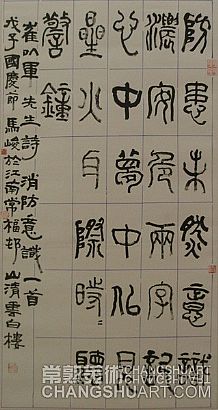 防患未然意識
濃安危兩字記
心中夢中似見
星火耳際時=聽
警鐘
崔㕥軍先生詩消防意識一首
戊子國慶節馬峻於江南常福邨山清東白樓
常熟美術 CHANGSHU
CHANGSHUART.COM